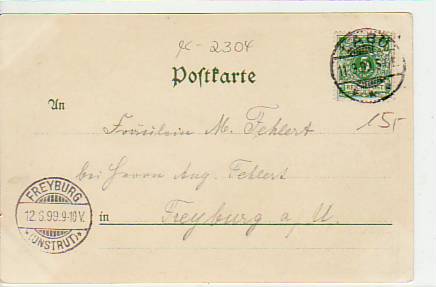 K-2304
Postkarte
An
Fräulein M. Fehlert
bei Herrn Aug. Fehlert
in Freyburg a/U.
15,-
FREYBURG
12.6.99.9-10V.
*(UNSTRUT)*